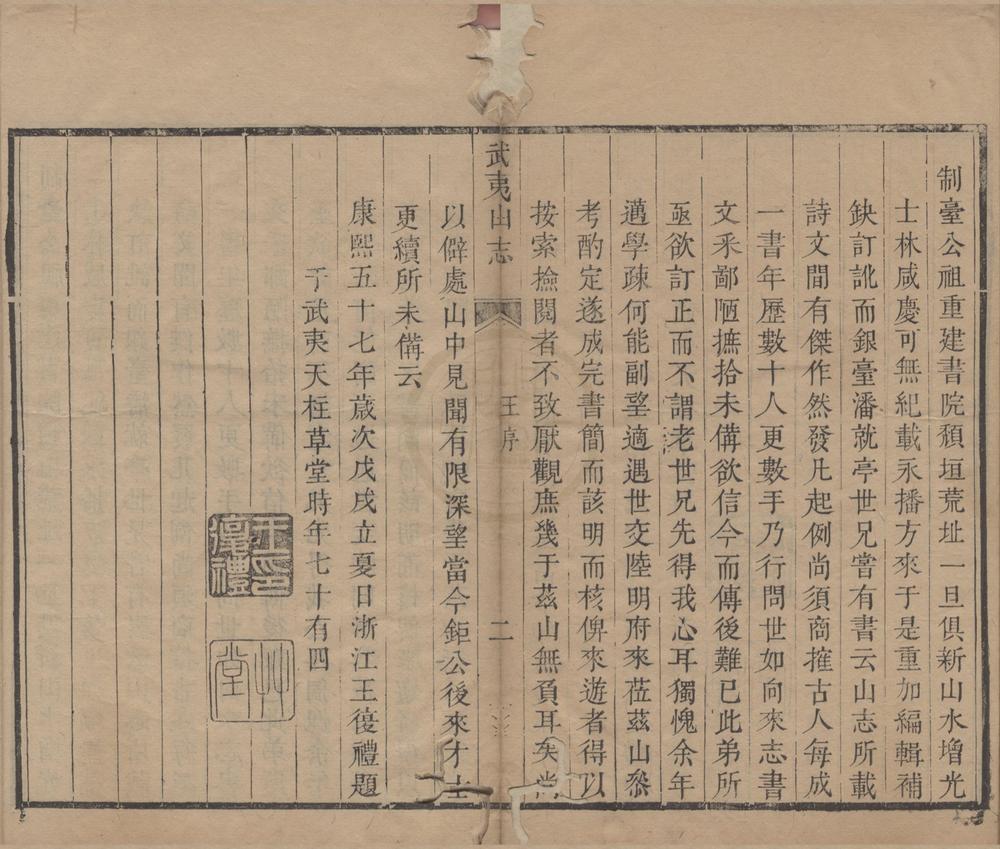 制臺公祖重建書院頹垣荒址一旦俱新山水增光
士林咸慶可無紀載永播方來于是重加編輯補
鈌訂訛而銀臺潘就亭世兄嘗有書云山志所載
詩文間有傑作然發凡起例尚須商搉古人每成
一書年歷數十人更數手乃行問世如向來志書
文釆鄙陋摭拾未備欲信今而傳後難已此弟所
亟欲訂正而不謂老世兄先得我心耳獨愧余年
邁學疎何能副望適遇世交陸明府來蒞茲山叅
考酌定遂成完書簡而該明而核俾來遊者得以
按索撿閱者不致厭觀庶幾于茲山無負耳矣尚
武夷山志 王序 二
以僻處山中見聞有限深望當今鉅公後來才士
更續所未備云
康熙五十七年歲次戊戌立夏日浙江王復禮題
于武夷天柱草堂時年七十有四
王印復禮
艸堂